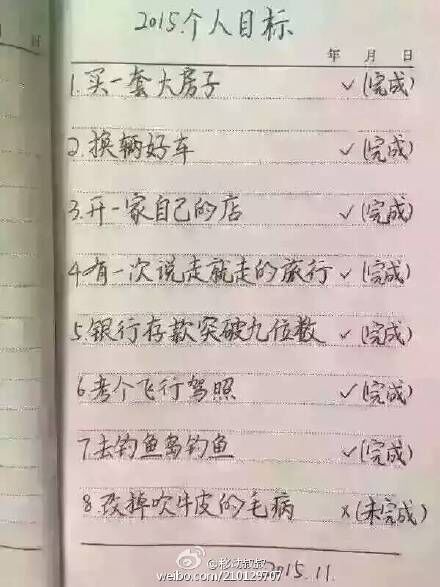 2015个人目标
年 月 日
1.买一套大房子 ✓(完成)
2.换辆好车 ✓(完成)
3.开一家自己的店 ✓(完成)
4.有一次说走就走的旅行 ✓(完成)
5.银行存款突破九位数 ✓(完成)
6.考个飞行驾照 ✓(完成)
7.去钓鱼岛钓鱼 ✓(完成)
8.改掉吹牛皮的毛病 ×(未完成)
2015.11.
weibo.com/210129707